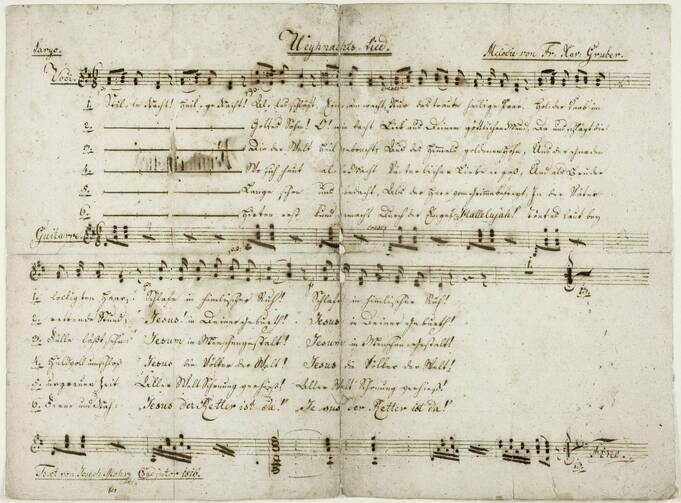 Largo. Weyhnachts-Lied. Melodie von Fr. Xav. Gruber.
Voce
1. Stille Nacht! Heil-ge Nacht! Alles schläft, Einsam wacht, Nur das traute heilige Paar. Holder Knab' im
2. Gottes Sohn! O! wie lacht Lieb aus Deinem göttlichen Mund, Da uns schlägt die
3. Die der Welt Heil gebracht, Aus des Himmels goldenen Höh'n, Aus der Gnaden
4. Wo sich heut alle Macht Väterlicher Liebe ergoß, Und als Bruder
5. Lange schon uns bedacht, Als der Herr vom Grimme befreyt, In der Väter
6. Hirten erst kundgemacht Durch der Engel Hallelujah! Tönt es laut bey
Guitarre
1. lockigten Haar; Schlafe in himlischer Ruh! Schlafe in himlischer Ruh!
2. rettende Stund; Jesus! in Deiner Geburth! Jesus in Deiner Geburth!
3. Fülle läßt sehn: Jesum in Menschengestalt! Jesum in Menschengestalt!
4. huldvoll umschloß Jesus die Völker der Welt! Jesus die Völker der Welt!
5. urgrauer Zeit Aller Welt Schonung verhieß! Aller Welt Schonung verhieß!
6. Ferne und Nah: Jesus der Retter ist da! Jesus der Retter ist da!
Fine.
Text von Joseph Mohr Coadjutor 1816.